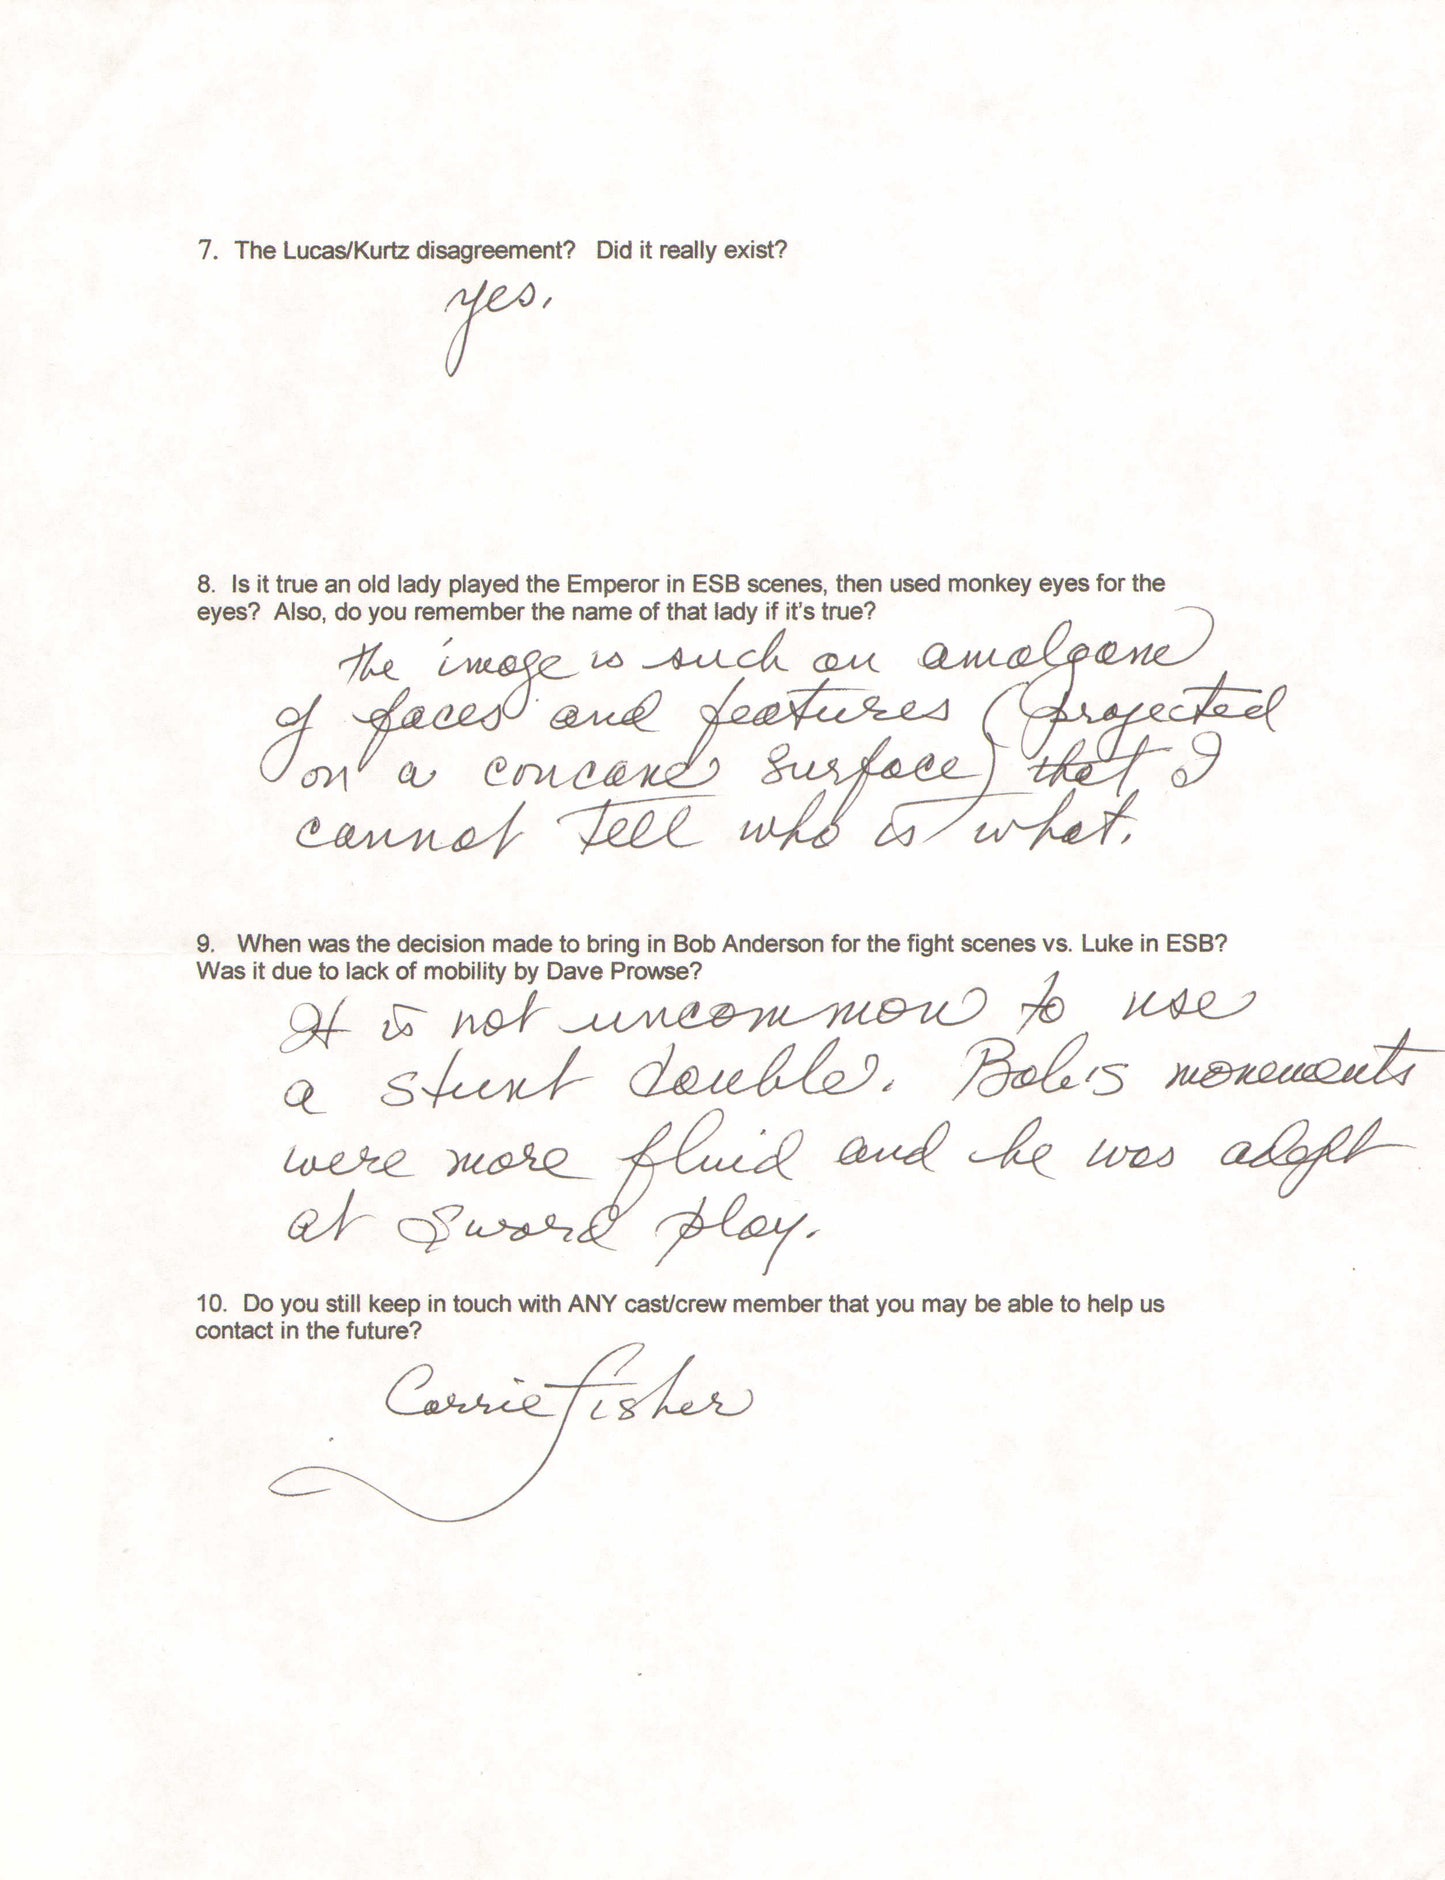 7. The Lucas/Kurtz disagreement? Did it really exist?
yes.
8. Is it true an old lady played the Emperor in ESB scenes, then used monkey eyes for the
eyes? Also, do you remember the name of that lady if it's true?
the image is such an amalgame
of faces and features (projected
on a concave surface) that I
cannot tell who is what.
9. When was the decision made to bring in Bob Anderson for the fight scenes vs. Luke in ESB?
Was it due to lack of mobility by Dave Prowse?
It is not uncommon to use
a stunt double. Bob's movements
were more fluid and he was adept
at sword play.
10. Do you still keep in touch with ANY cast/crew member that you may be able to help us
contact in the future?
Carrie Fisher